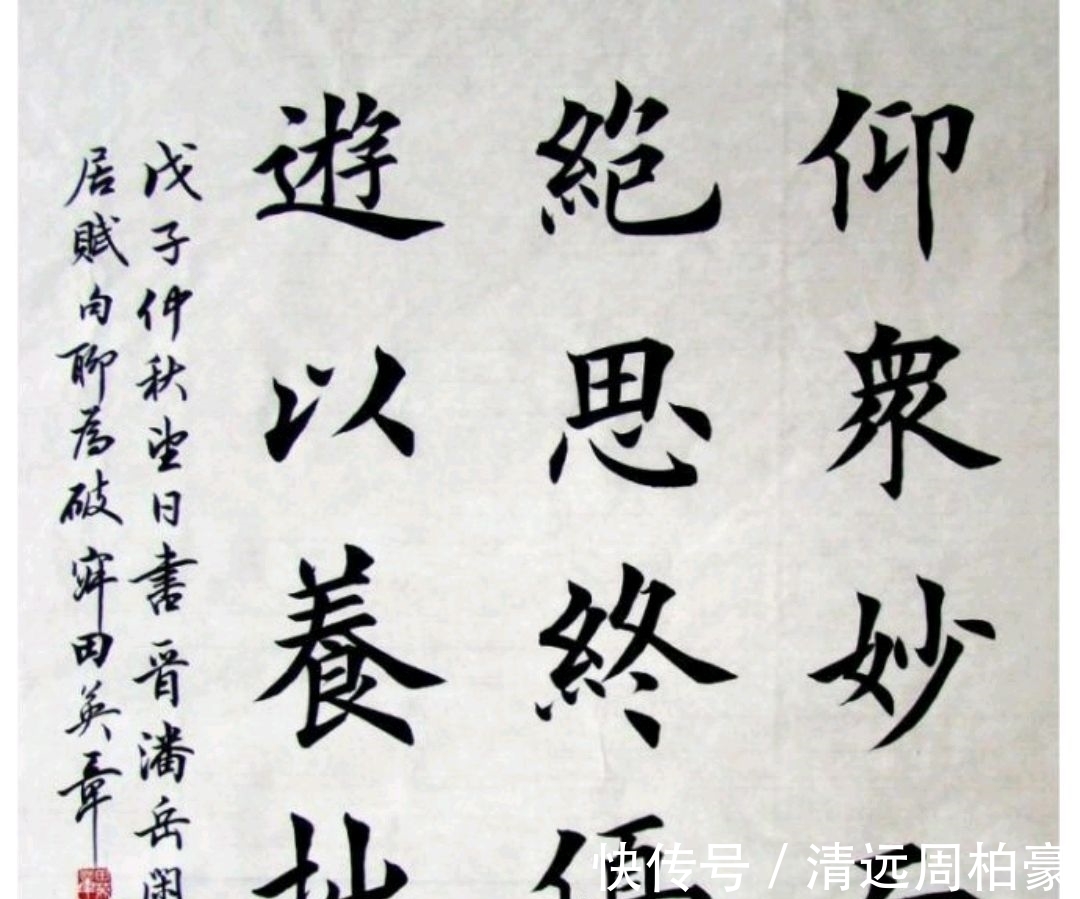 仰衆妙
絶思終優
遊以養拙
戊子仲秋望日書晉潘岳閑
居賦句聊為破寐田英章
快传号 / 清远周柏豪